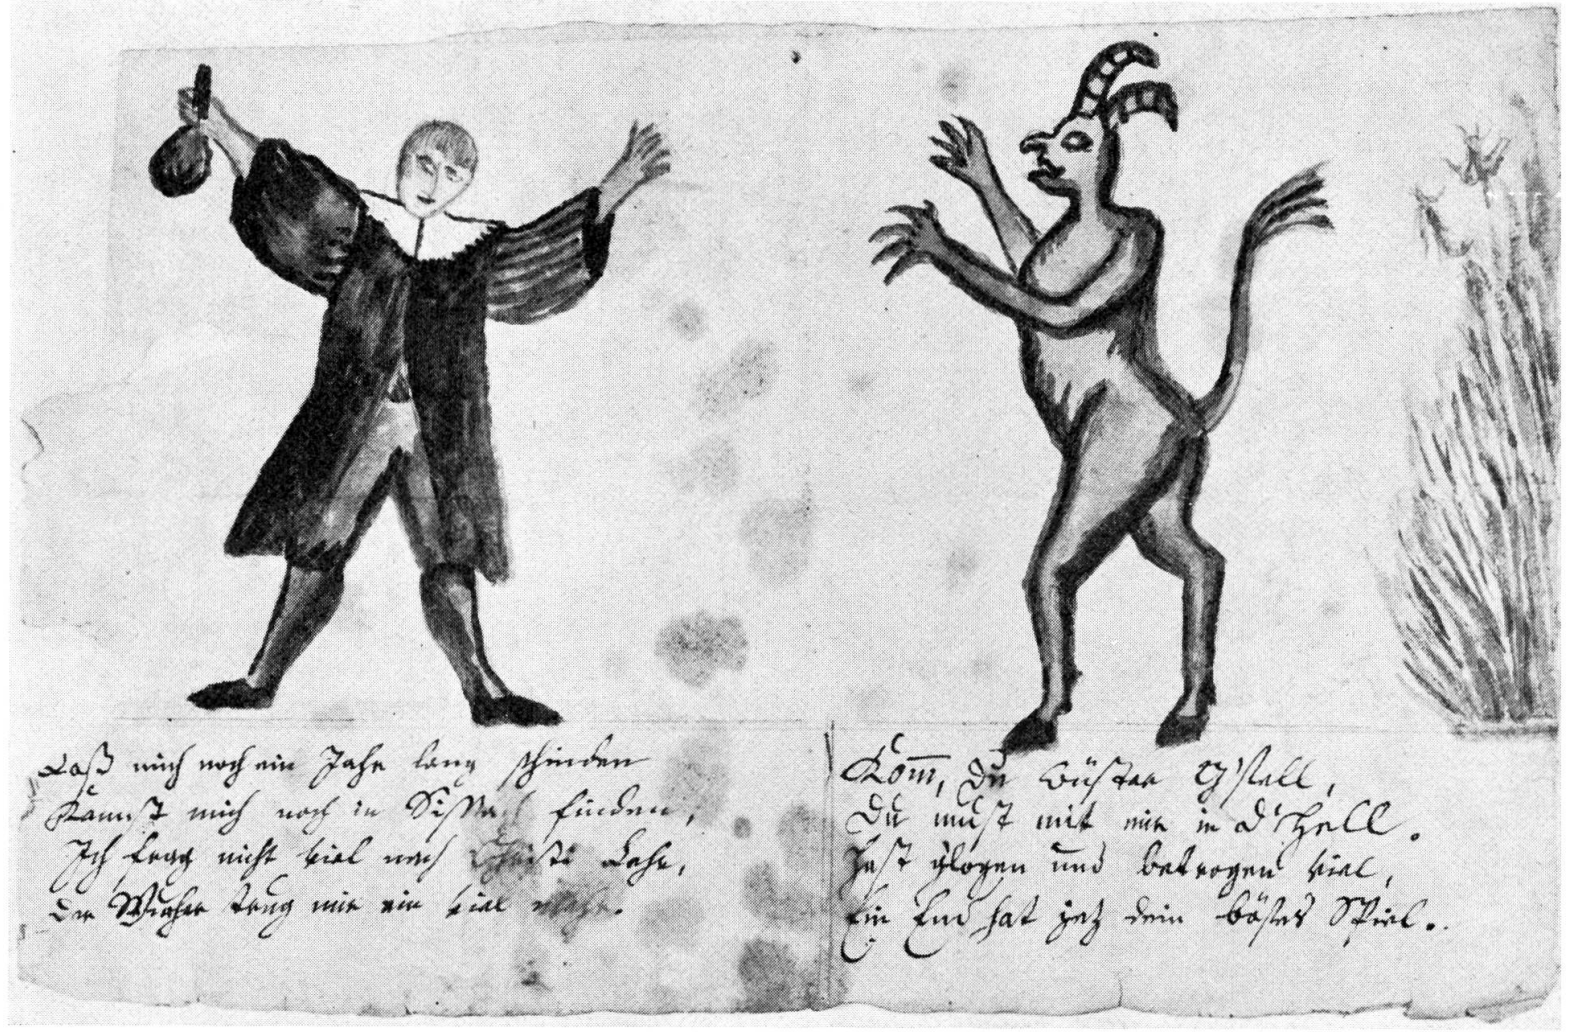 Laß mich noch ein Jahr lang schinden
Kannst mich noch in Sissach finden,
Ich frag nicht viel nach Christi Lehr,
Der Wucher trug mir ein viel mehr.
Kom̅, Du wüster G'stell,
Du must mit mir in d'Hell.
Hast glogen und betrogen viel,
Ein End hat jetz dein böses Spiel.